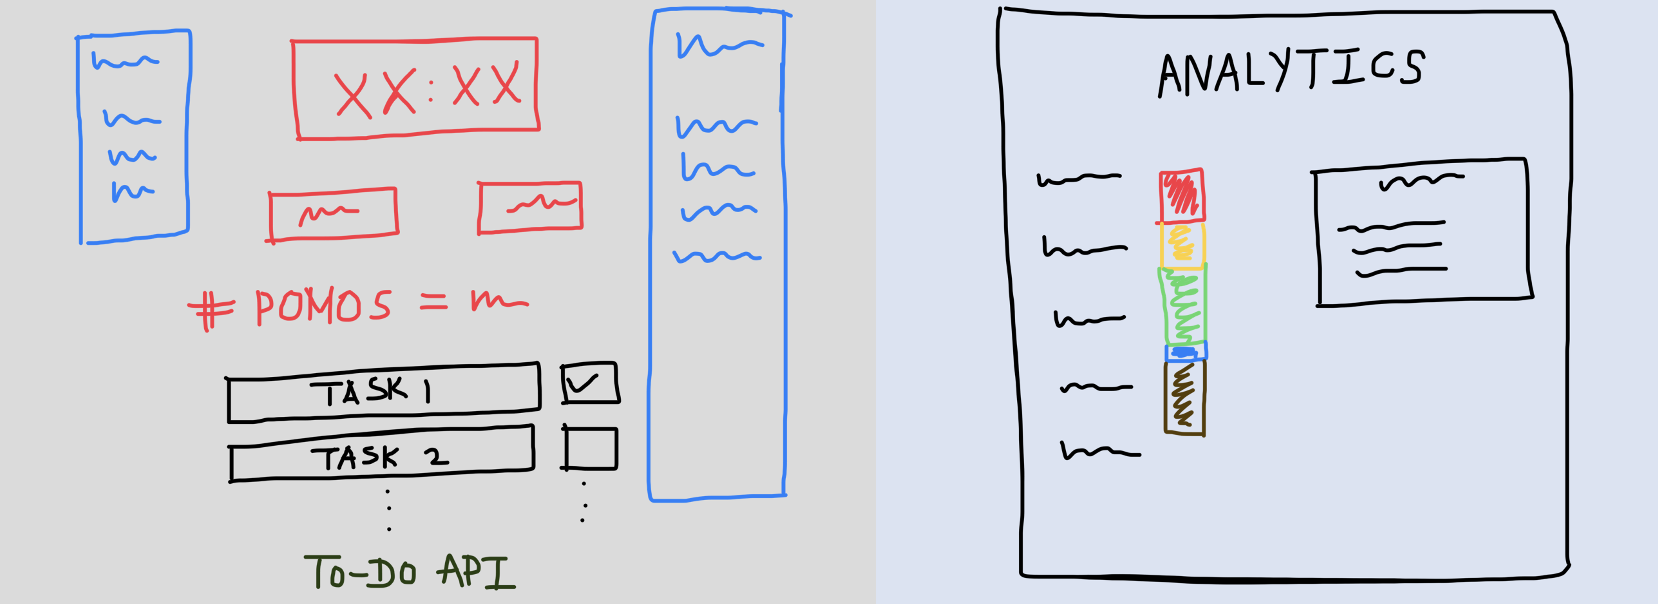 XX:XX
# POMOS =
TASK 1
TASK 2
TO-DO API
ANALYTICS